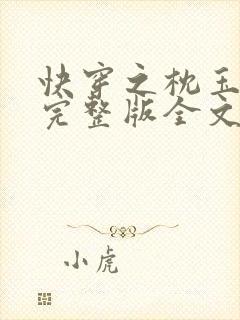 快穿之枕玉
完整版全文
小虎